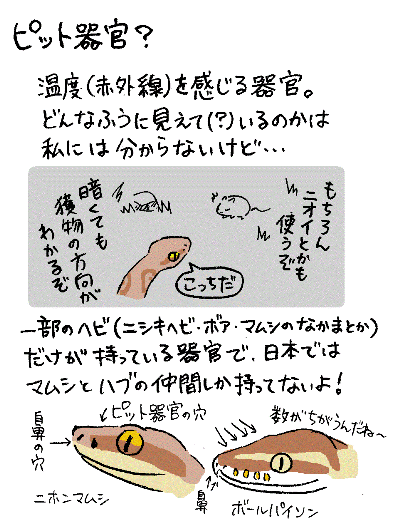 ピット器官？
温度(赤外線)を感じる器官。
どんなふうに見えて(？)いるのかは
私には分からないけど…
もちろん
ニオイとかも
使うぞ
暗くても
獲物の方向が
わかるぞ
こっちだ
一部のヘビ(ニシキヘビ・ボア・マムシのなかまとか)
だけが持っている器官で、日本では
マムシとハブの仲間しか持ってないよ！
ピット器官の穴
鼻の穴
ニホンマムシ
数がちがうんだね〜
鼻
ボールパイソン